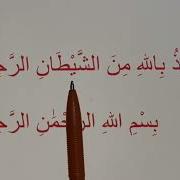 ذُ بِاللهِ مِنَ الشَّيْطَانِ الرَّجِ
بِسْمِ اللهِ الرَّحْمَٰنِ الرَّحِ